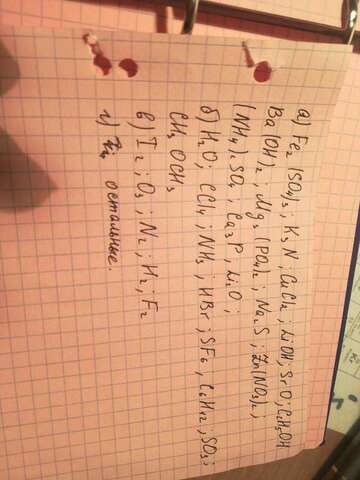 а) Fe₂(SO₄)₃; K₃N; CuCl₂; LiOH; SrO; C₂H₅OH
Ba(OH)₂; Mg₃(PO₄)₂; Na₂S; Zn(NO₃)₂;
(NH₄)₂SO₄; Ca₃P; Li₂O;
б) H₂O; CCl₄; NH₃; HBr; SF₆; C₆H₁₂; SO₃;
CH₃OCH₃
в) I₂; O₃; N₂; H₂; F₂
г) остальные.